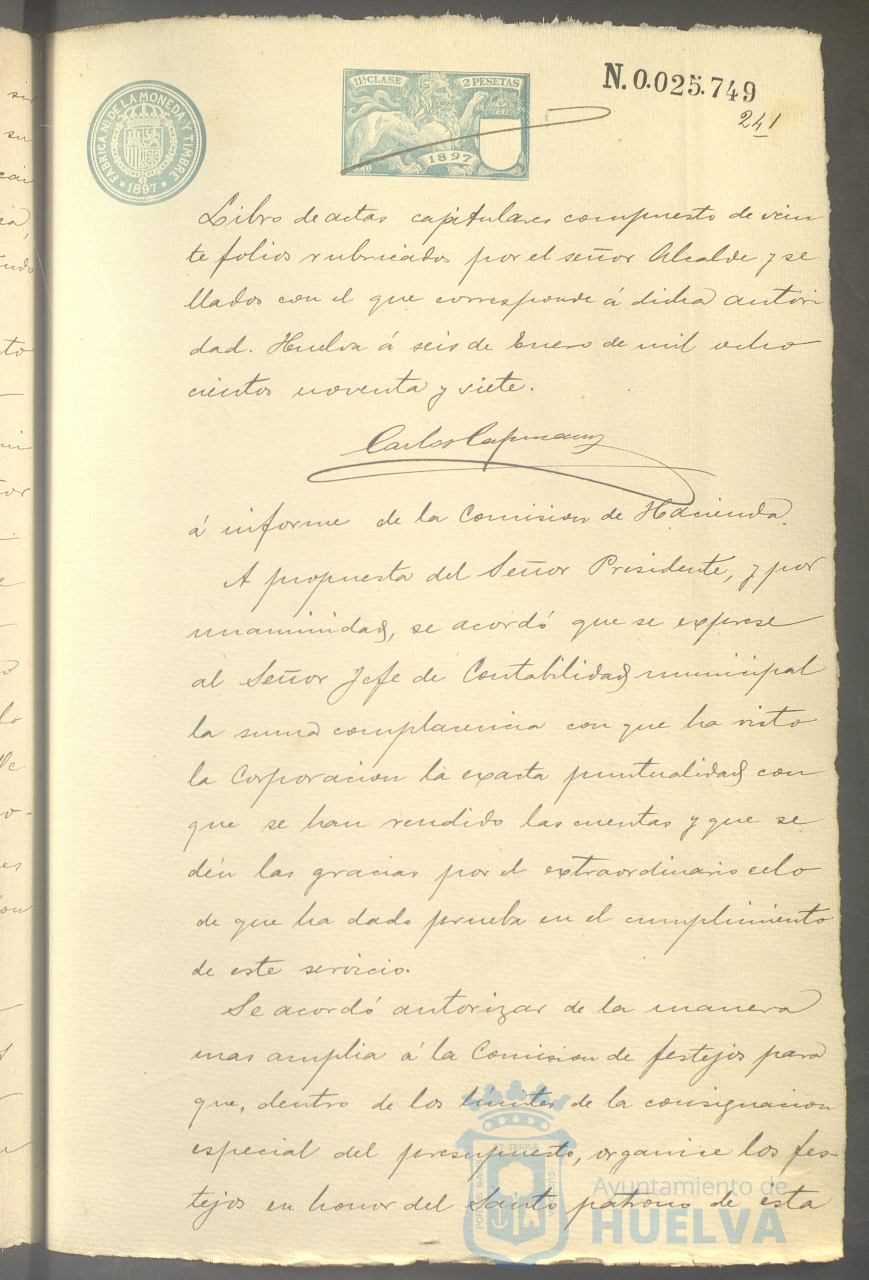 FABRICA NL. DE LA MONEDA Y TIMBRE
* 1897 *
11ª CLASE 2 PESETAS
1897
N.0.025.749
241
Libro de actas capitulares compuesto de vein
te folios rubricados por el señor Alcalde y se
llados con el que corresponde á dicha autori
dad. Huelva á seis de Enero de mil ocho
cientos noventa y siete.
Carlos Capmany
á informe de la Comision de Hacienda.
A propuesta del Señor Presidente, y por
unanimidad, se acordó que se exprese
al Señor Jefe de Contabilidad municipal
la suma complacencia con que ha visto
la Corporacion la exacta puntualidad con
que se han rendido las cuentas y que se
dén las gracias por el extraordinario celo
de que ha dado prueba en el cumplimiento
de este servicio.
Se acordó autorizar de la manera
mas amplia á la Comision de festejos para
que, dentro de los límites de la consignacion
especial del presupuesto, organice los fes-
tejos en honor del Santo patrono de esta
Ayuntamiento de
HUELVA